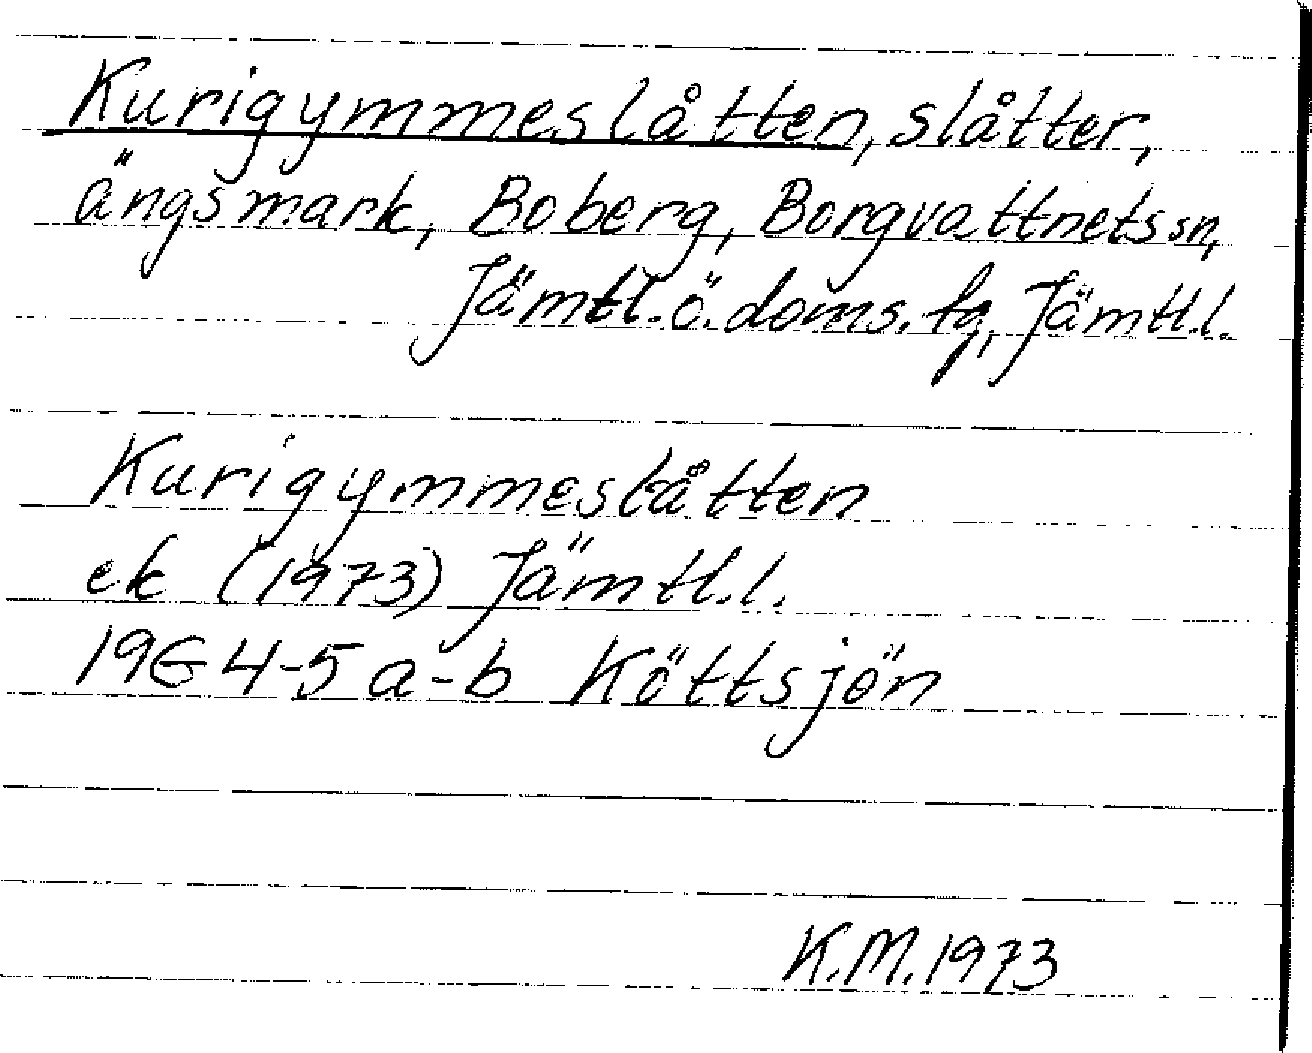 Kurigymmeslåtten, slåtter,
ängsmark, Boberg, Borgvattnets sn,
Jämtl. ö. doms. tg, Jämtl.l.
Kurigymmeslåtten
ek (1973) Jämtl.l.
19G 4-5 a-b Köttsjön
K.M. 1973